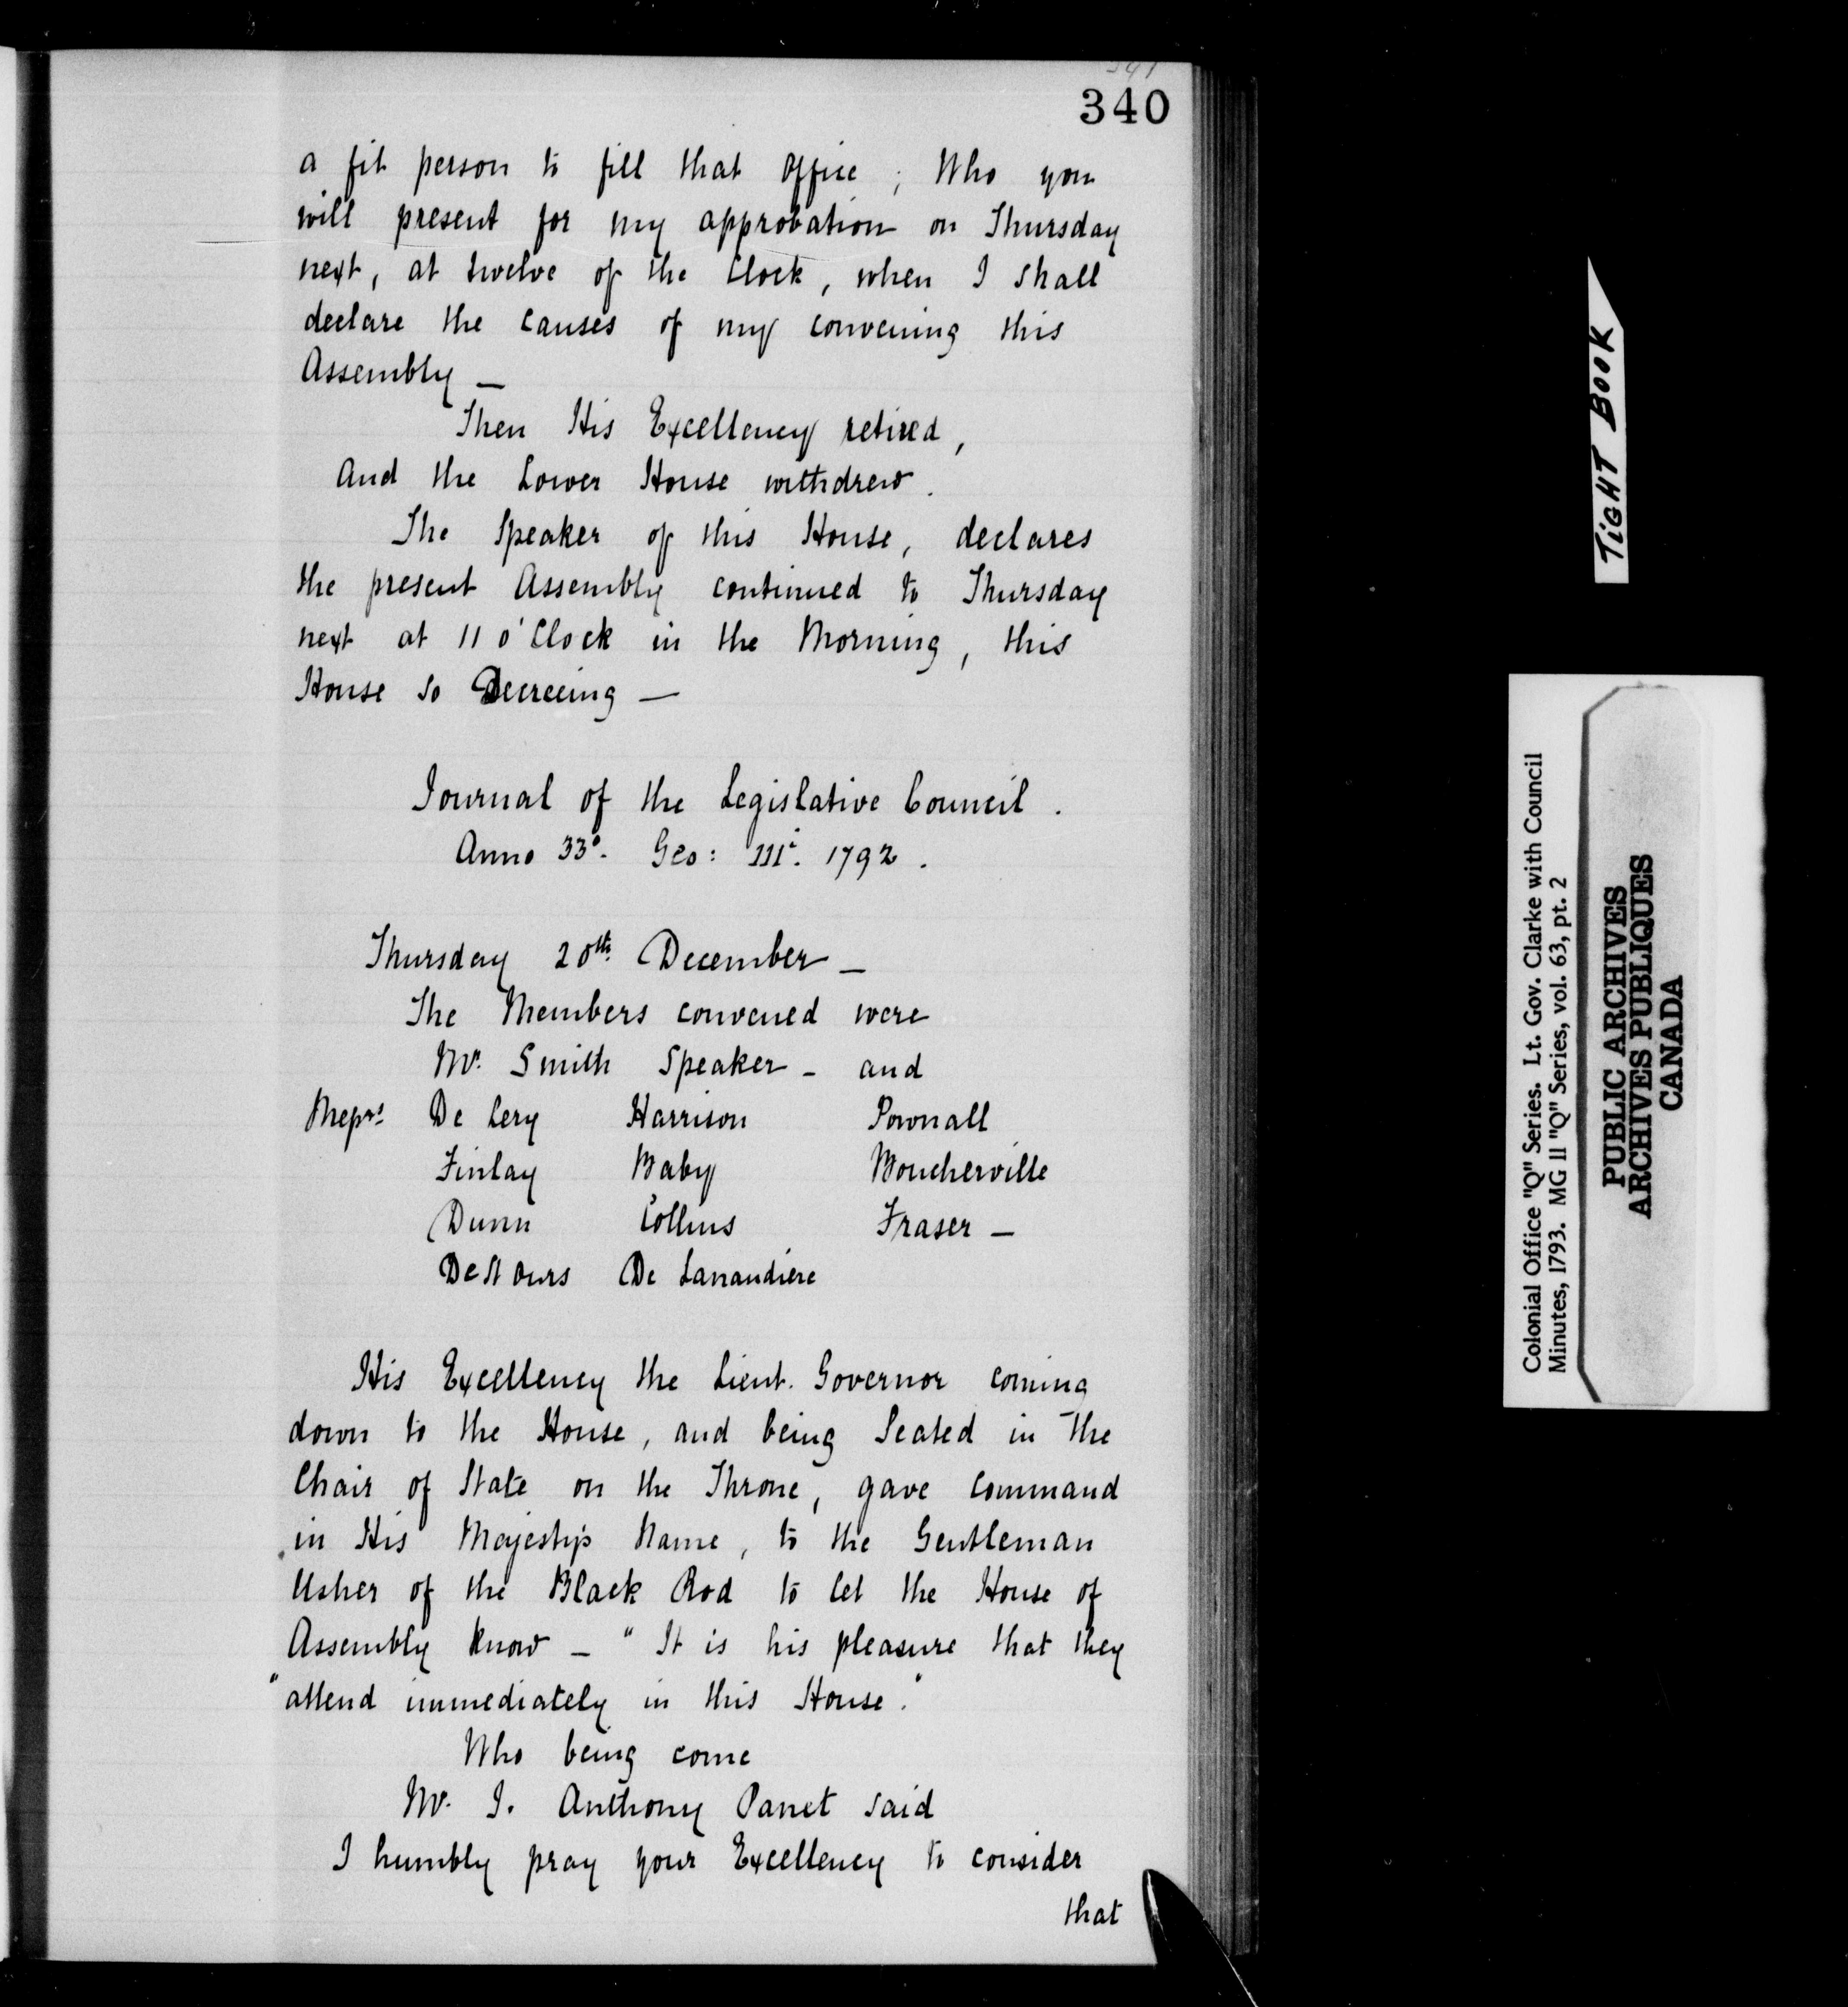 340
a fit person to fill that office; Who you
will present for my approbation on Thursday
next, at twelve of the Clock, when I shall
declare the Causes of my convening this
Assembly —
Then His Excellency retired,
And the Lower House withdrew.
The Speaker of this House, declares
the present Assembly continued to Thursday
next at 11 o'Clock in the Morning, this
House so Decreeing —
Journal of the Legislative Council.
Anno 33°. Geo: IIIi. 1792.
Thursday 20th December —
The Members convened were
Mr. Smith Speaker - and
Messrs De Lery Harrison Pownall
Finlay Baby Boucherville
Dunn Collins Fraser —
De St Ours De Lanaudiere
His Excellency the Lieut. Governor coming
down to the House, and being Seated in the
Chair of State on the Throne, gave Command
in His Majesty's Name, to the Gentleman
Usher of the Black Rod to let the House of
Assembly know — "It is his pleasure that they
"attend immediately in this House."
Who being come
Mr. J. Anthony Panet said
I humbly pray your Excellency to consider
that
TIGHT BOOK
Colonial Office "Q" Series. Lt. Gov. Clarke with Council
Minutes, 1793. MG 11 "Q" Series, vol. 63, pt. 2
PUBLIC ARCHIVES
ARCHIVES PUBLIQUES
CANADA